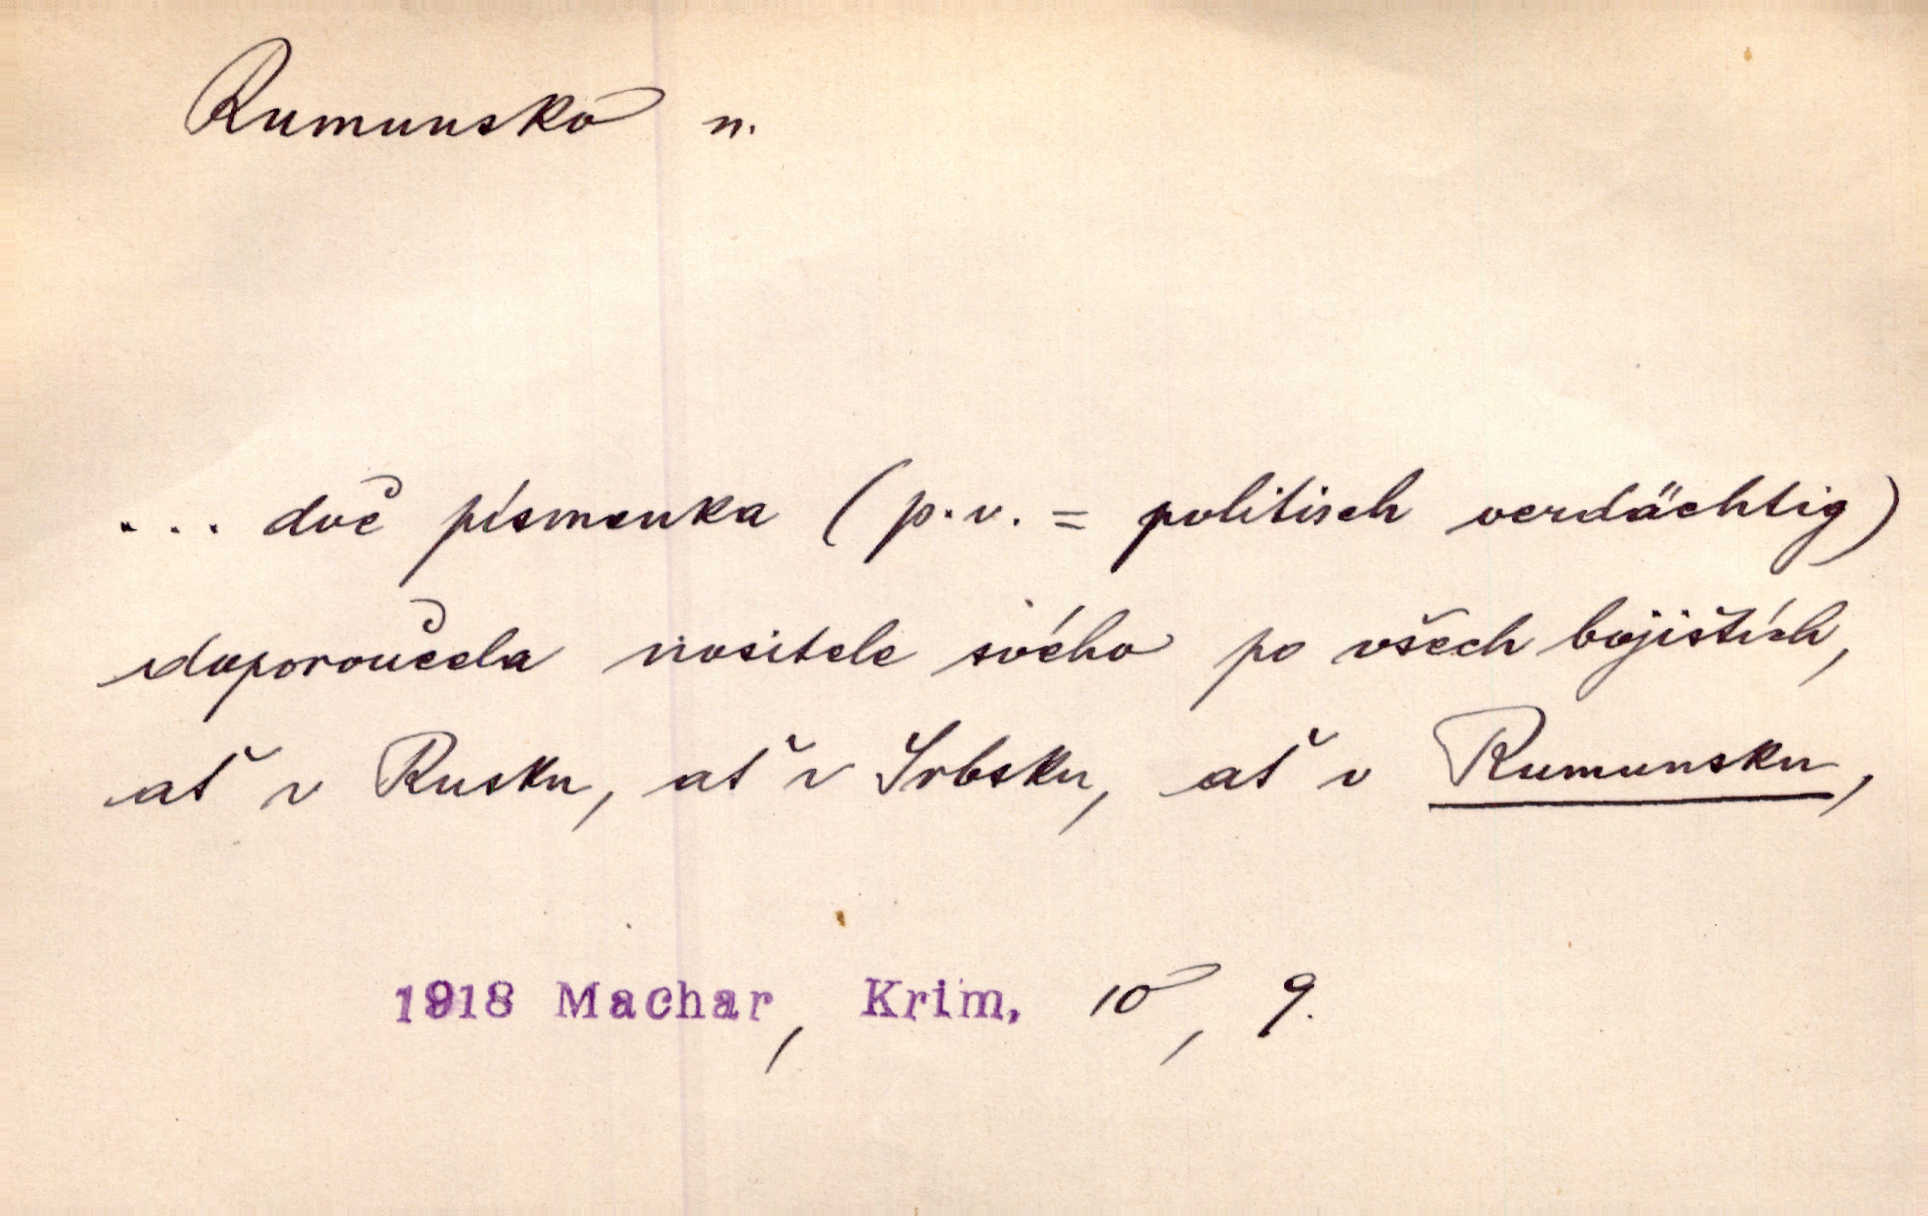 Rumunsko n.
... dvě písmenka (p.v. = politisch verdächtig)
doporoučela nositele svého po všech bojištích,
ať v Rusku, ať v Srbsku, ať v Rumunsku,
1918 Machar, Krim. 10, 9.